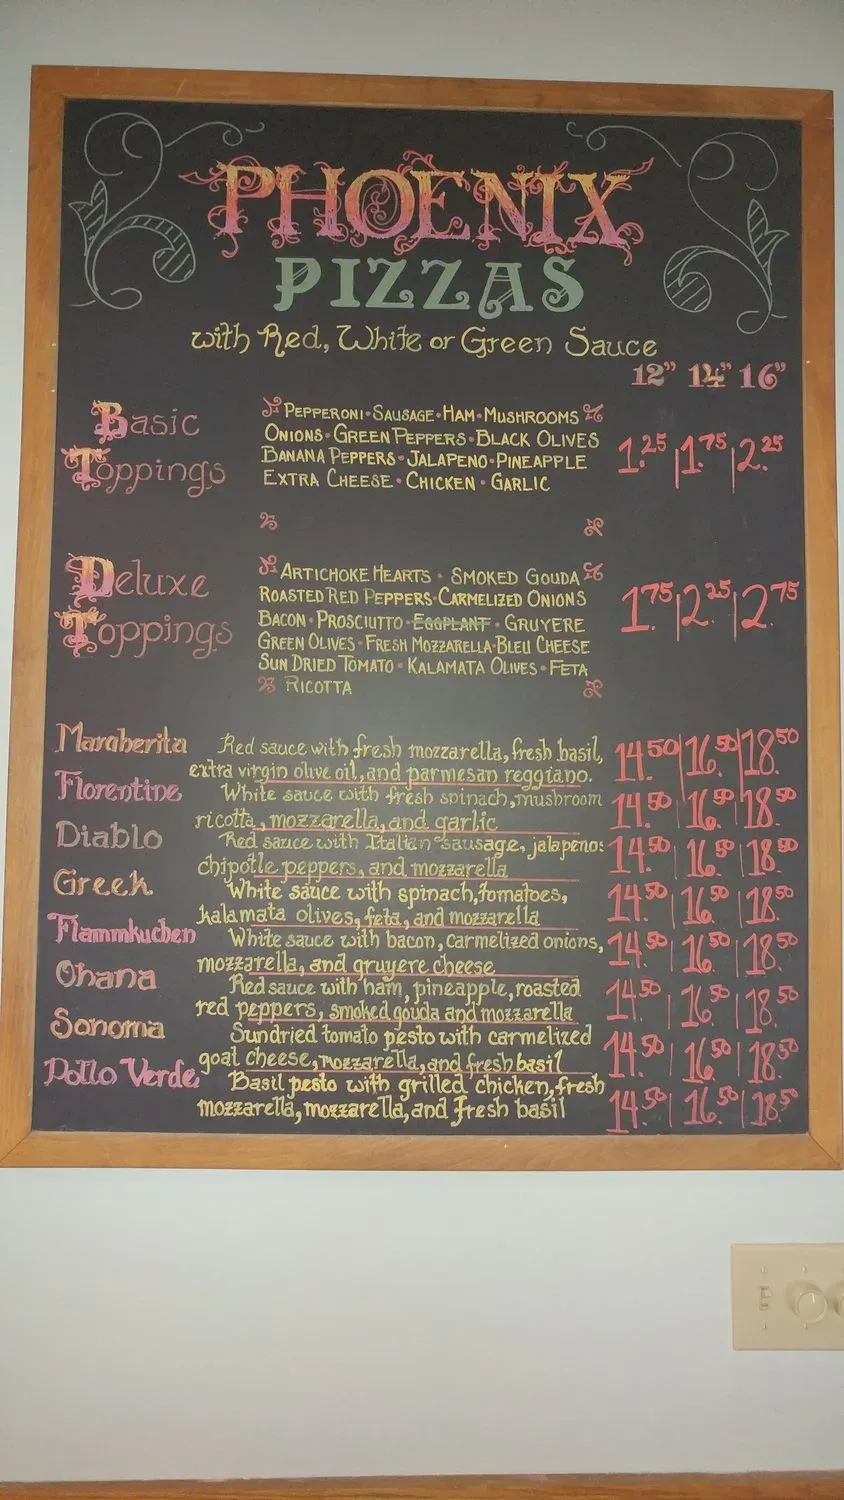 PHOENIX
PIZZAS
with Red, White or Green Sauce
12" 14" 16"
Basic
Toppings
PEPPERONI • SAUSAGE • HAM • MUSHROOMS
ONIONS • GREEN PEPPERS • BLACK OLIVES
BANANA PEPPERS • JALAPENO • PINEAPPLE
EXTRA CHEESE • CHICKEN • GARLIC
1.25 | 1.75 | 2.25
Deluxe
Toppings
ARTICHOKE HEARTS • SMOKED GOUDA
ROASTED RED PEPPERS • CARMELIZED ONIONS
BACON • PROSCIUTTO • EGGPLANT • GRUYERE
GREEN OLIVES • FRESH MOZZARELLA • BLEU CHEESE
SUN DRIED TOMATO • KALAMATA OLIVES • FETA
RICOTTA
1.75 | 2.25 | 2.75
Margherita Red sauce with fresh mozzarella, fresh basil,
extra virgin olive oil, and parmesan reggiano. 14.50 | 16.50 | 18.50
Florentine White sauce with fresh spinach, mushroom
ricotta, mozzarella, and garlic 14.50 | 16.50 | 18.50
Diablo Red sauce with Italian sausage, jalapenos
chipotle peppers, and mozzarella 14.50 | 16.50 | 18.50
Greek White sauce with spinach, tomatoes,
kalamata olives, feta, and mozzarella 14.50 | 16.50 | 18.50
Flammkuchen White sauce with bacon, carmelized onions,
mozzarella, and gruyere cheese 14.50 | 16.50 | 18.50
Ohana Red sauce with ham, pineapple, roasted
red peppers, smoked gouda and mozzarella 14.50 | 16.50 | 18.50
Sonoma Sundried tomato pesto with carmelized
goat cheese, mozzarella, and fresh basil 14.50 | 16.50 | 18.50
Pollo Verde Basil pesto with grilled chicken, fresh
mozzarella, mozzarella, and fresh basil 14.50 | 16.50 | 18.50